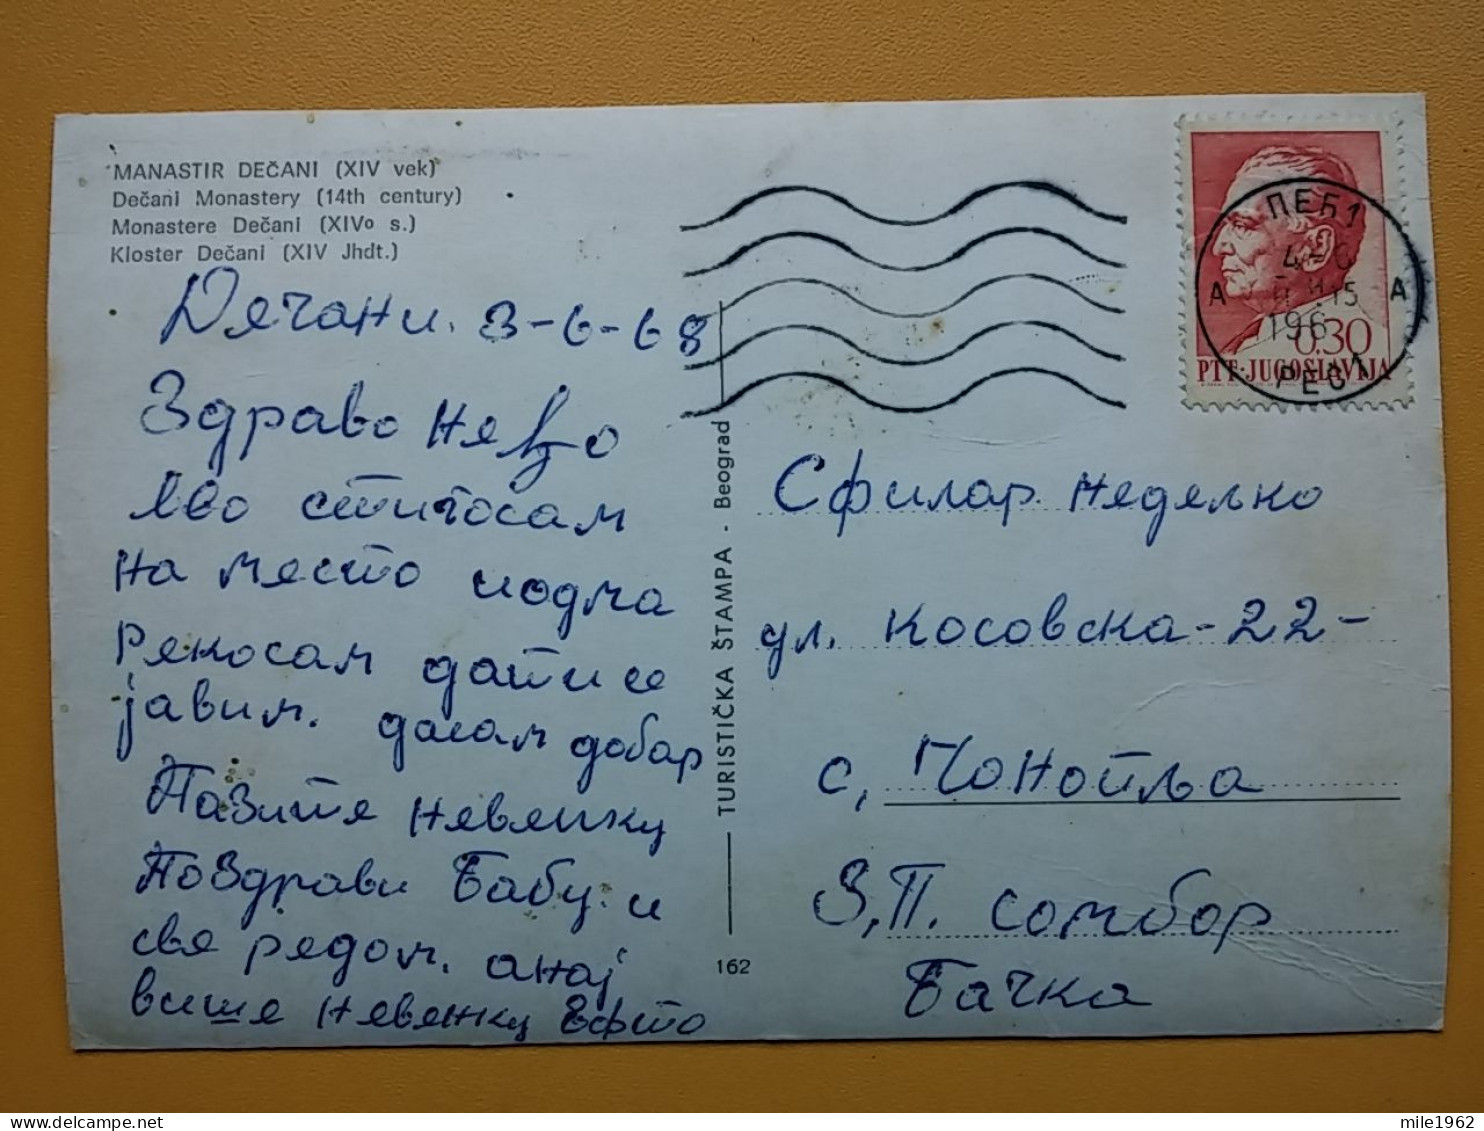 MANASTIR DEČANI (XIV vek)
Dečani Monastery (14th century)
Monastere Dečani (XIVº s.)
Kloster Dečani (XIV Jhdt.)
Дечани. 3-6-68
Здраво Неђо
Ево стигосам
на место иодма
рекосам дати се
јавим. дасам добар
Пазите Невенку
Поздрави Бабу и
све редом. анај
више Невенку
TURISTIČKA ŠTAMPA - Beograd
162
ПЕЋ 1
A A
196
PEĆ 1
0.30
PTT·JUGOSLAVIJA
Сфилар Недељко
ул. Косовска-22-
с, Чонопља
З,П. Сомбор
Бачка
mile1962